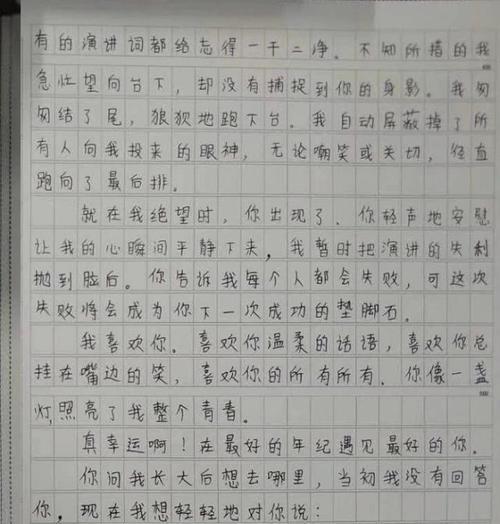 有的演讲词都给忘得一干二净。不知所措的我
急忙望向台下，却没有捕捉到你的身影。我匆
匆结了尾，狼狈地跑下台。我自动屏蔽掉了所
有人向我投来的眼神，无论嘲笑或关切，径直
跑向了最后排。
就在我绝望时，你出现了。你轻声地安慰
让我的心瞬间平静下来，我暂时把演讲的失利
抛到脑后。你告诉我每个人都会失败，可这次
失败将会成为你下一次成功的垫脚石。
我喜欢你。喜欢你温柔的话语，喜欢你总
挂在嘴边的笑，喜欢你的所有所有。你像一盏
灯，照亮了我整个青春。
真幸运啊！在最好的年纪遇见最好的你。
你问我长大后想去哪里，当初我没有回答
你，现在我想轻轻地对你说：